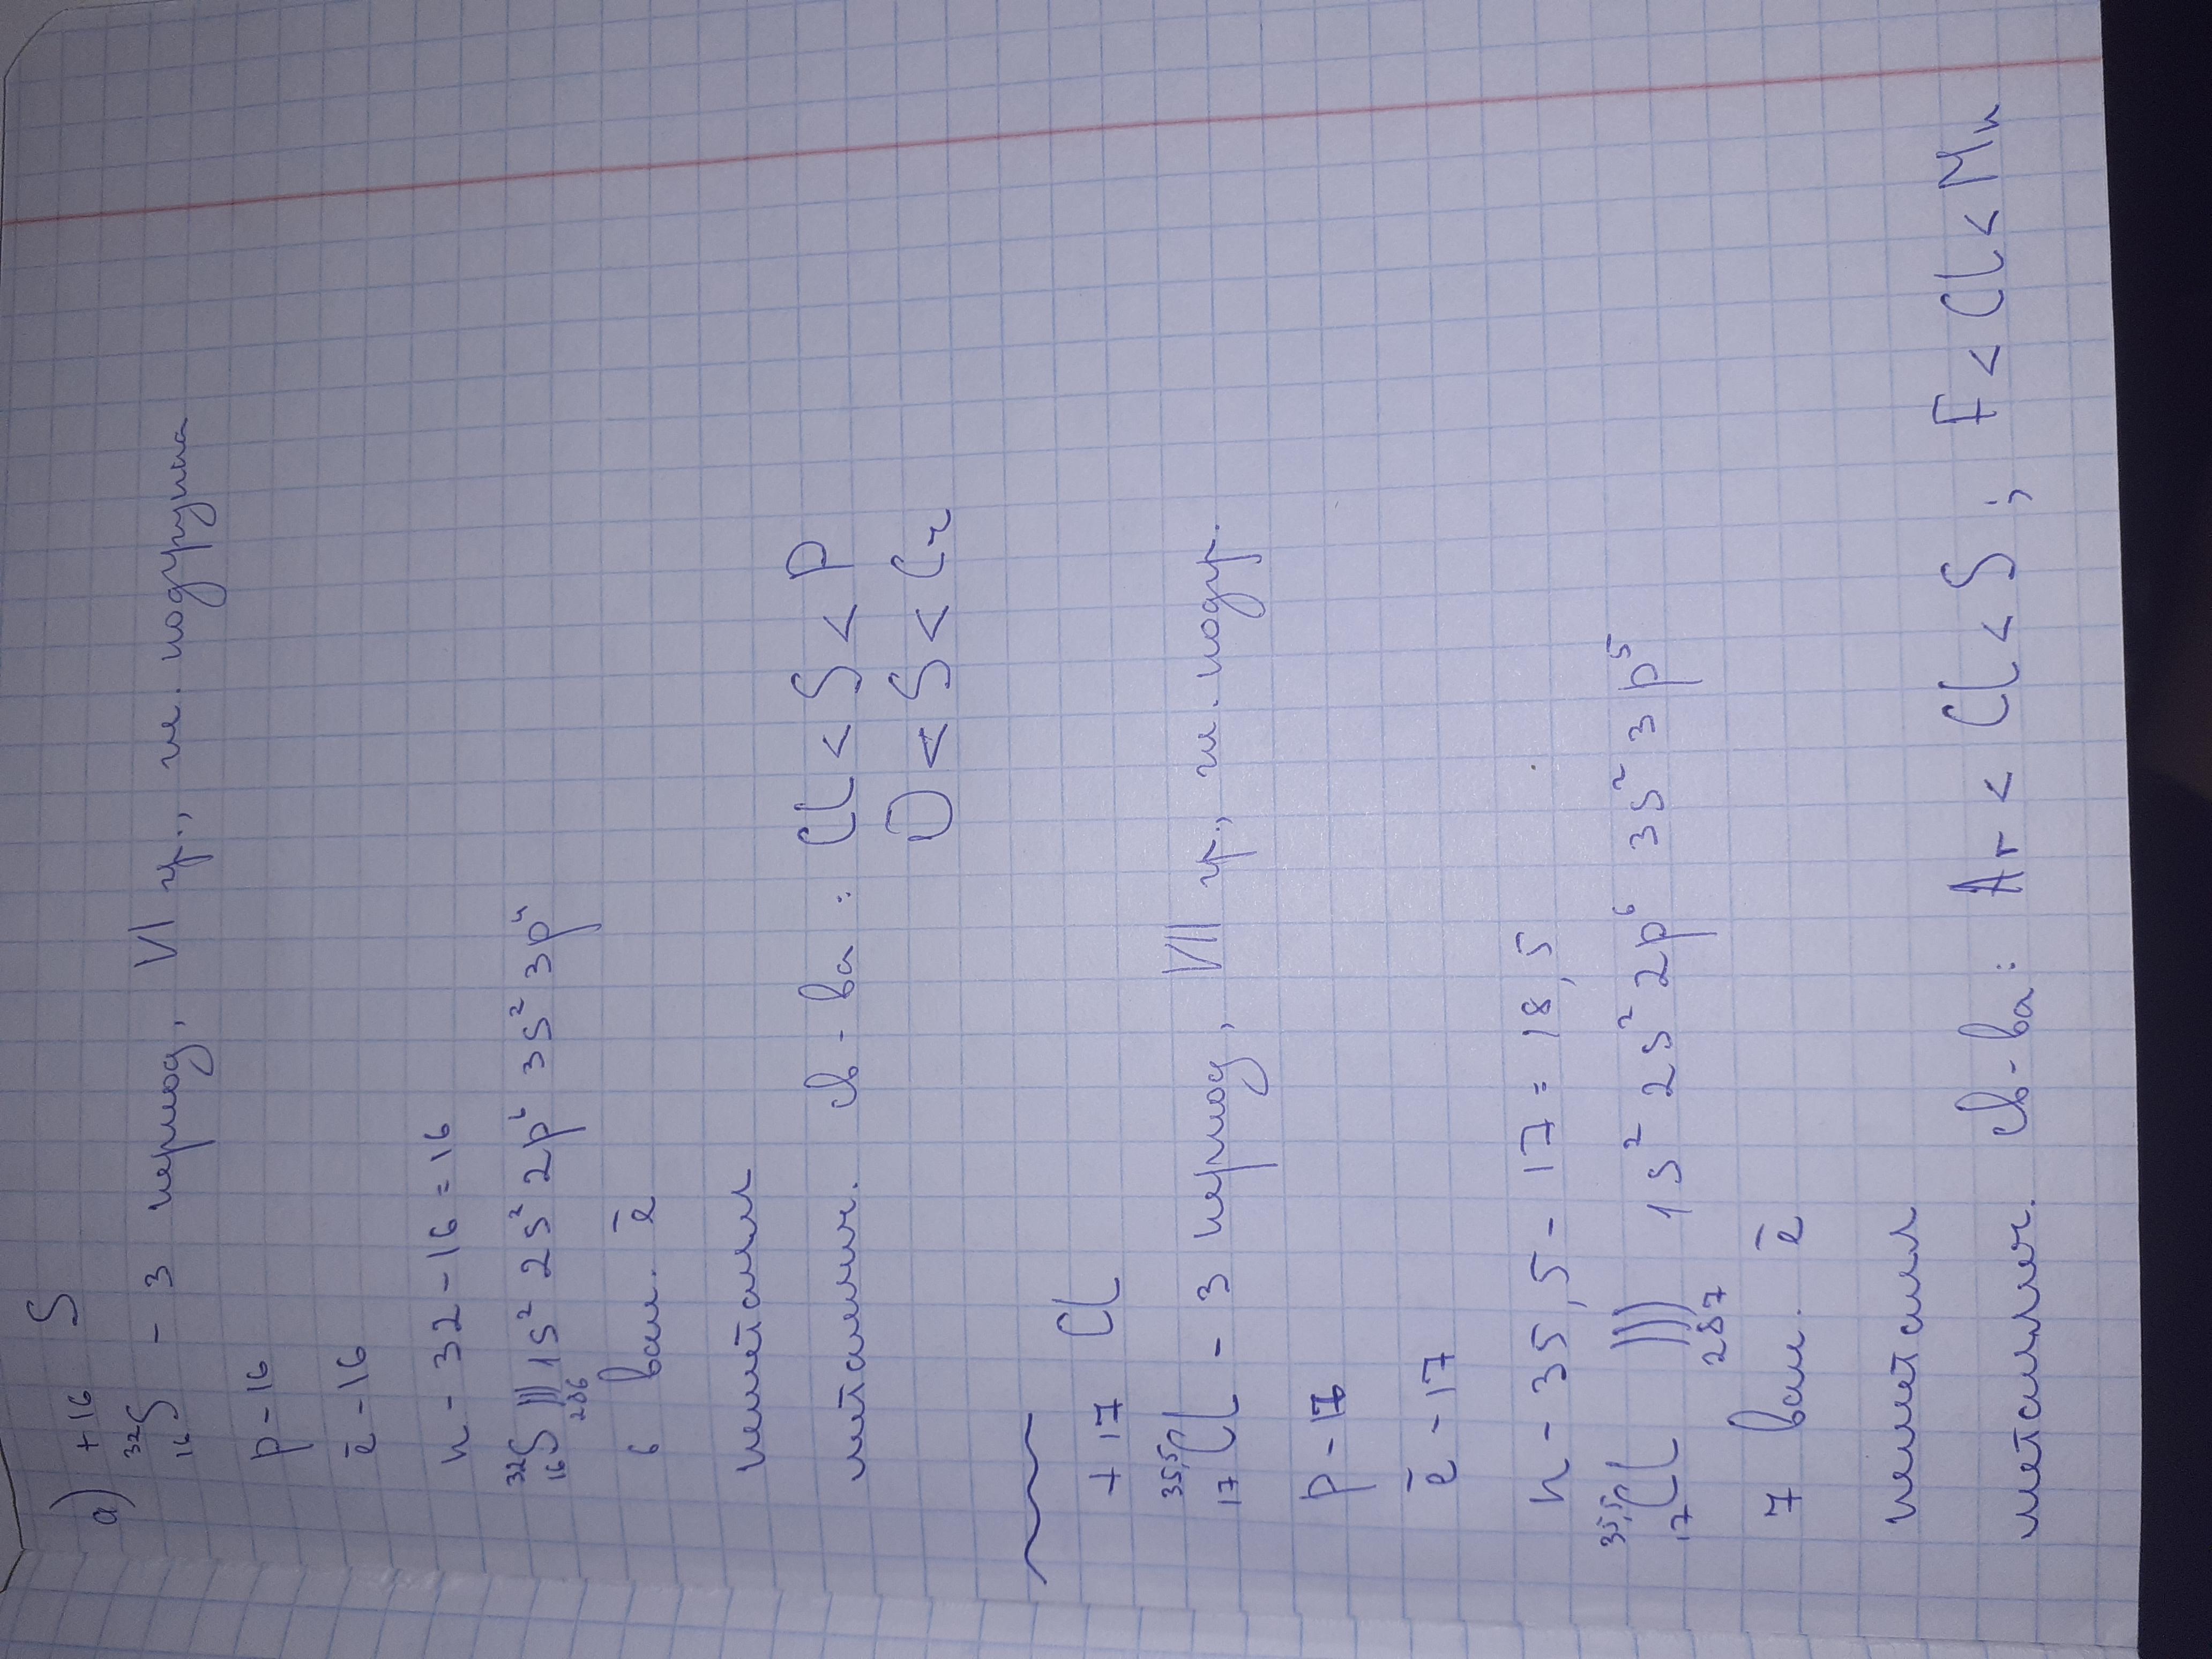 а) +16 S
³²₁₆S - 3 период, VI гр., гл. подгруппа
p - 16
ē - 16
n - 32 - 16 = 16
³²₁₆S ))) 1s² 2s² 2p⁶ 3s² 3p⁴
286
6 вал. ē
неметалл
металлич. св-ва: Cl < S < P
O < S < Cr
+17 Cl
³⁵,⁵₁₇Cl - 3 период, VII гр., гл. подгр.
p - 17
ē - 17
n - 35,5 - 17 = 18,5
³⁵,⁵₁₇Cl ))) 1s² 2s² 2p⁶ 3s² 3p⁵
287
7 вал. ē
неметалл
металлич. св-ва: Ar < Cl < S; F < Cl < Mn